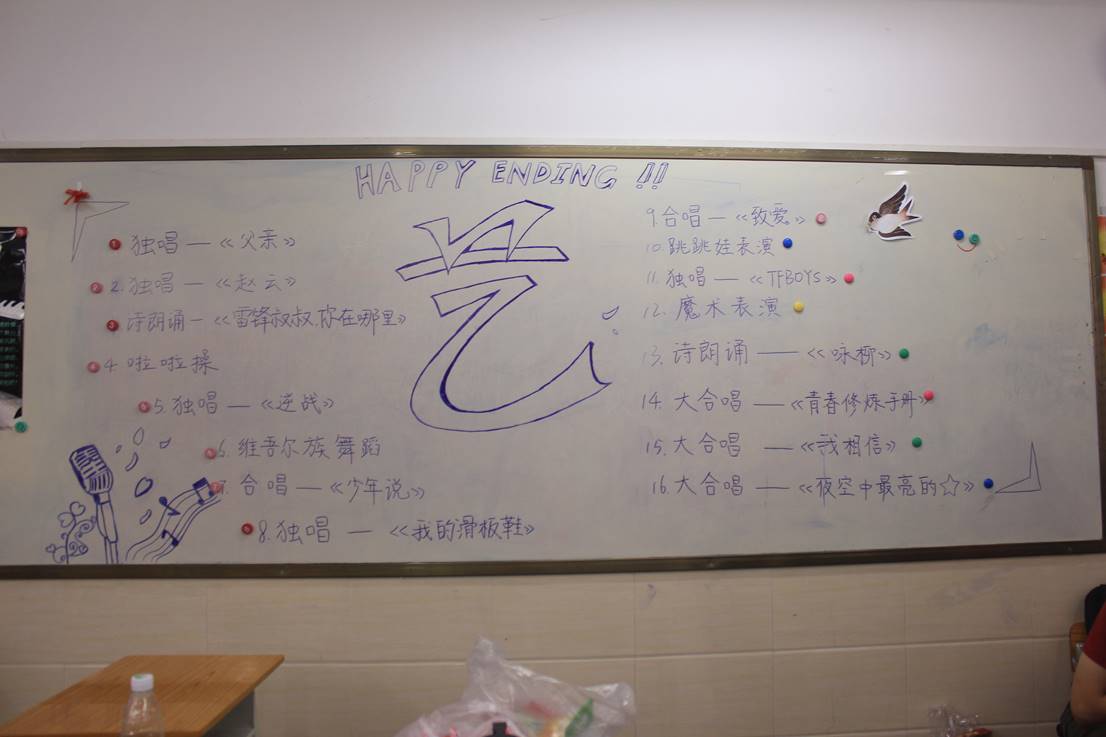 HAPPY ENDING !!
艺
独唱 — 《父亲》
2. 独唱 — 《赵云》
诗朗诵 — 《雷锋叔叔,你在哪里》
4. 啦啦操
5. 独唱 — 《逆战》
6. 维吾尔族舞蹈
7. 合唱 — 《少年说》
8. 独唱 — 《我的滑板鞋》
9 合唱 — 《致爱》
10. 跳跳娃表演
11. 独唱 — 《TFBOYS》
12. 魔术表演
13. 诗朗诵 — 《咏柳》
14. 大合唱 — 《青春修炼手册》
15. 大合唱 — 《我相信》
16. 大合唱 — 《夜空中最亮的☆》